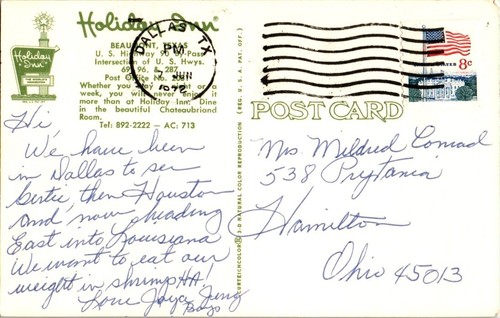 Holiday Inn
BEAUMONT, TEXAS
U. S. Highway 90 By-Pass
Intersection of U. S. Hwys.
69, 96, & 287,
Post Office No.
Whether you stay a night or a
week, you will never enjoy it
more than at Holiday Inn. Dine
in the beautiful Chateaubriand
Room.
Tel: 892-2222 — AC: 713
Holiday Inn
DALLAS, TX
PM
7 JUN
1972
8c
POST CARD
Hi,
We have been
in Dallas to see
Gertie, then Houston
and now heading
East into Louisiana
We want to eat our
weight in shrimp HA!
Love Joyce, Jerry
Boys
Mrs. Mildred Conrad
538 Prytania
Hamilton
Ohio 45013